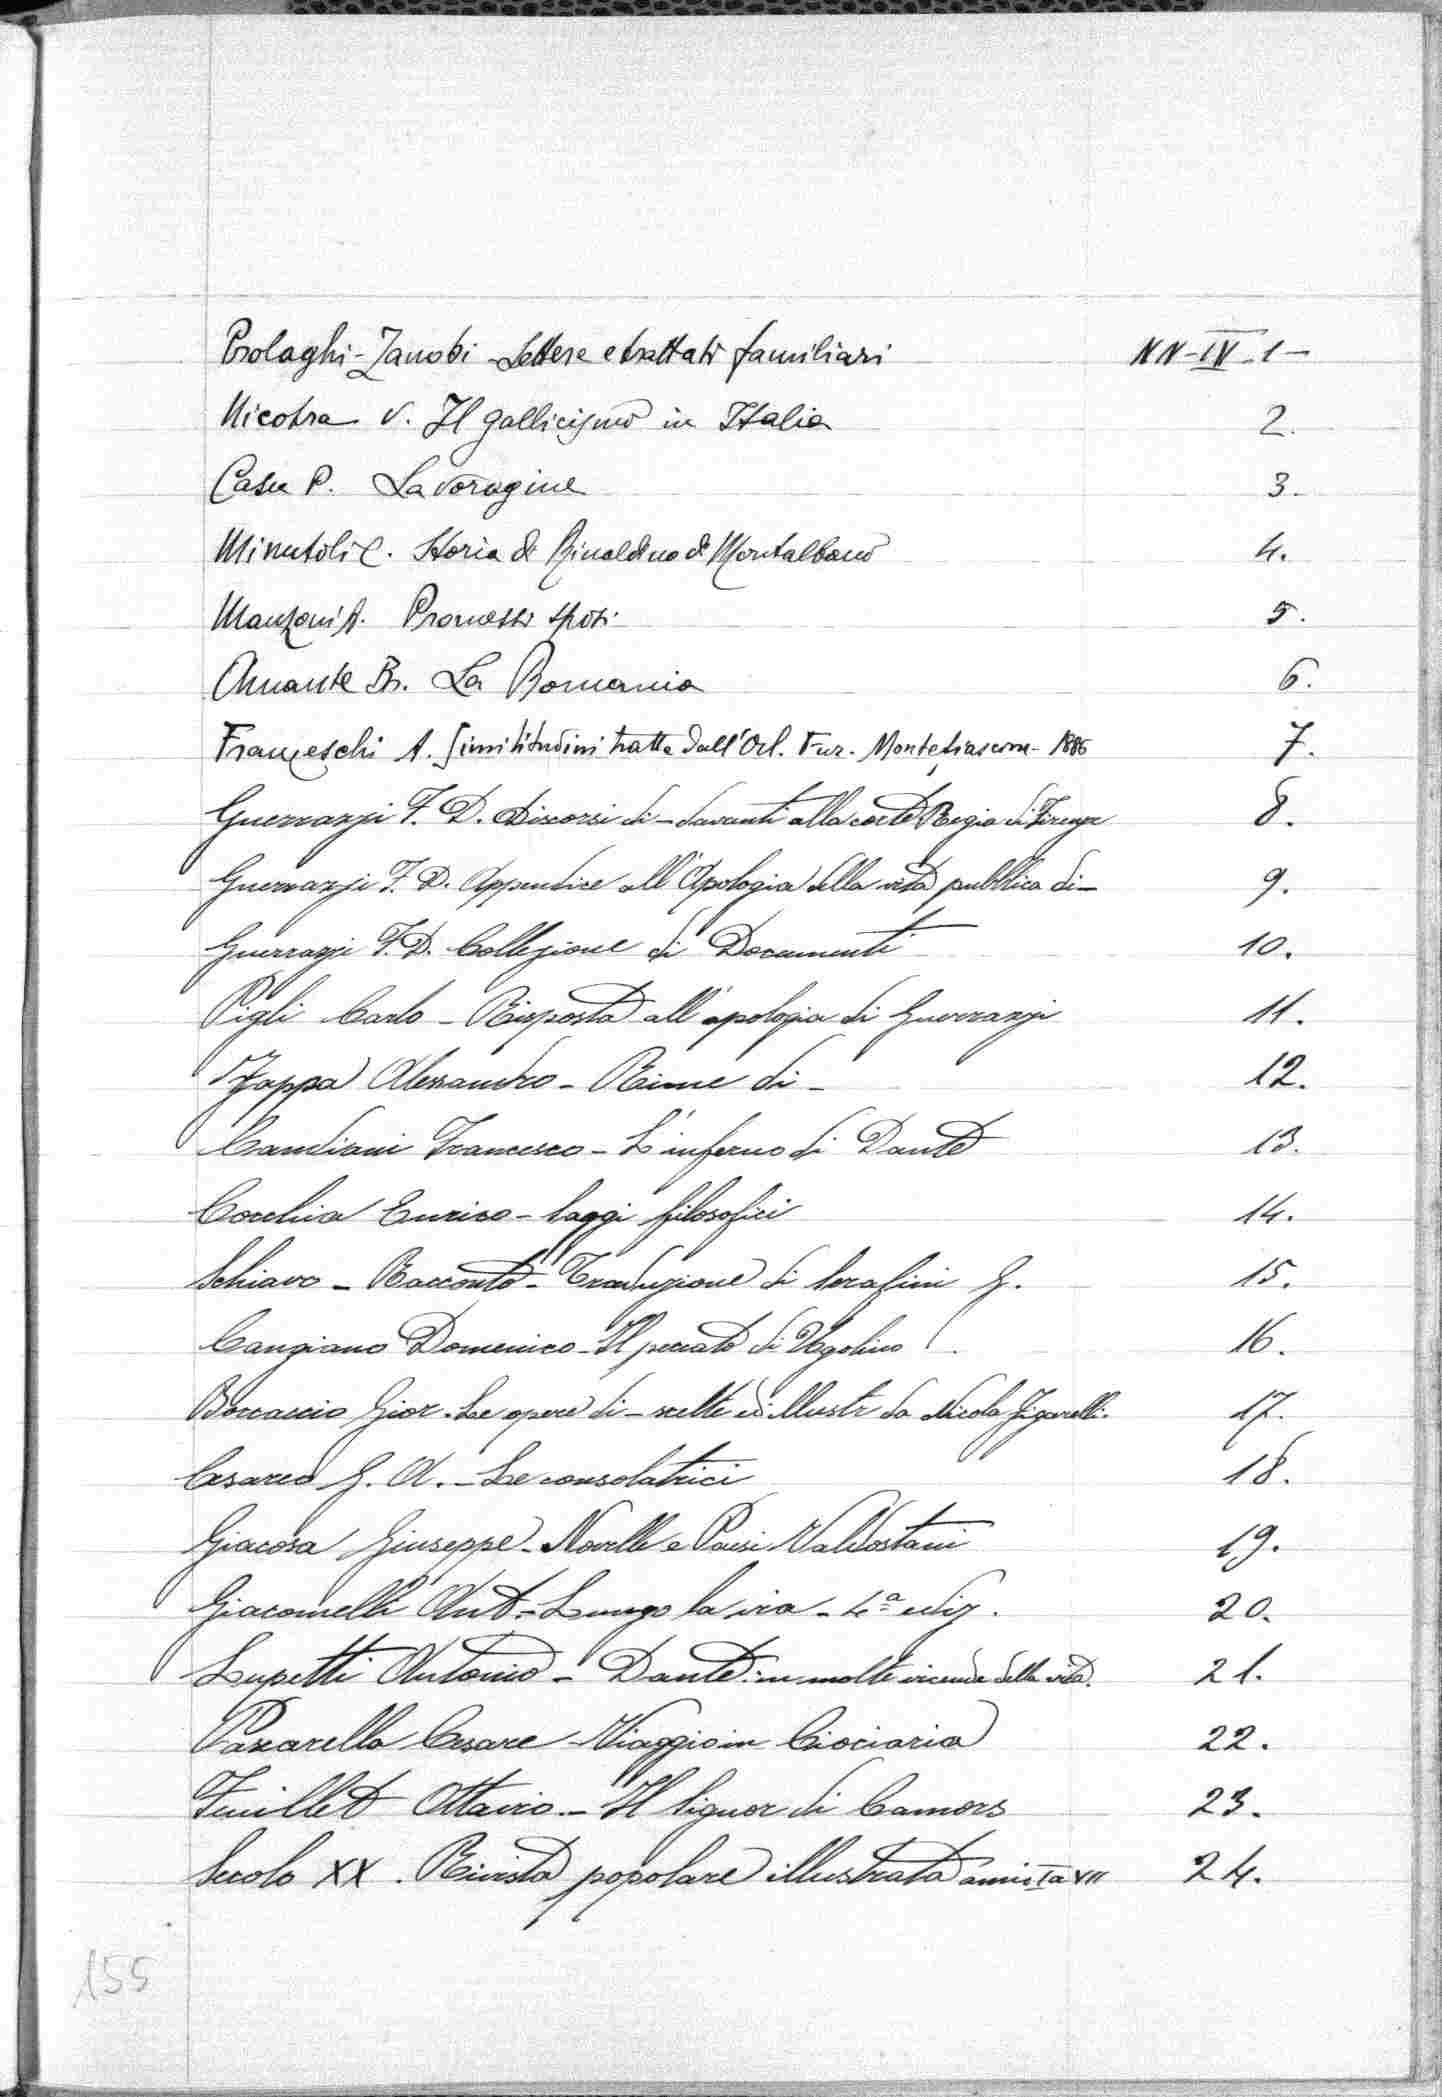 Bolaghi-Zanobi - Lettere e trattati familiari NN-IV-1-
Nicotra V. Il gallicismo in Italia 2.
Casu P. La voragine 3.
Minutoli C. Storia di Rinaldino di Montalbano 4.
Manzoni A. Promessi sposi 5.
Amante Br. La Romania 6.
Franceschi A. Similitudini tratte dall'Orl. Fur. Montefiascone - 1886 7.
Guerrazzi F. D. Discorsi di - davanti alla corte Regia di Firenze 8.
Guerrazzi F. D. Appendice all'Apologia della vita pubblica di - 9.
Guerrazzi F. D. Collezione di Documenti 10.
Pigli Carlo - Risposta all'apologia di Guerrazzi 11.
Zappa Alessandro - Rime di - 12.
Candiani Francesco - L'inferno di Dante 13.
Cocchia Enrico - Saggi filosofici 14.
Schiavo - Racconto - Traduzione di Serafini G. 15.
Cangiano Domenico - Il peccato di Ugolino 16.
Boccaccio Gior. Le opere di - scelte ed illustr da Nicola Zigarelli. 17.
Cesareo G. A. - Le consolatrici 18.
Giacosa Giuseppe - Novelle e Paesi Valdostani 19.
Giacomelli Ant - Lungo la via - 4ª ediz. 20.
Lupetti Antonio - Dante: in molte vicende della vita. 21.
Pascarella Cesare - Viaggio in Ciociaria 22.
Feuillet Ottavio. - Il Signor di Camors 23.
Secolo XX. Rivista popolare illustrata anni I a VII 24.
155